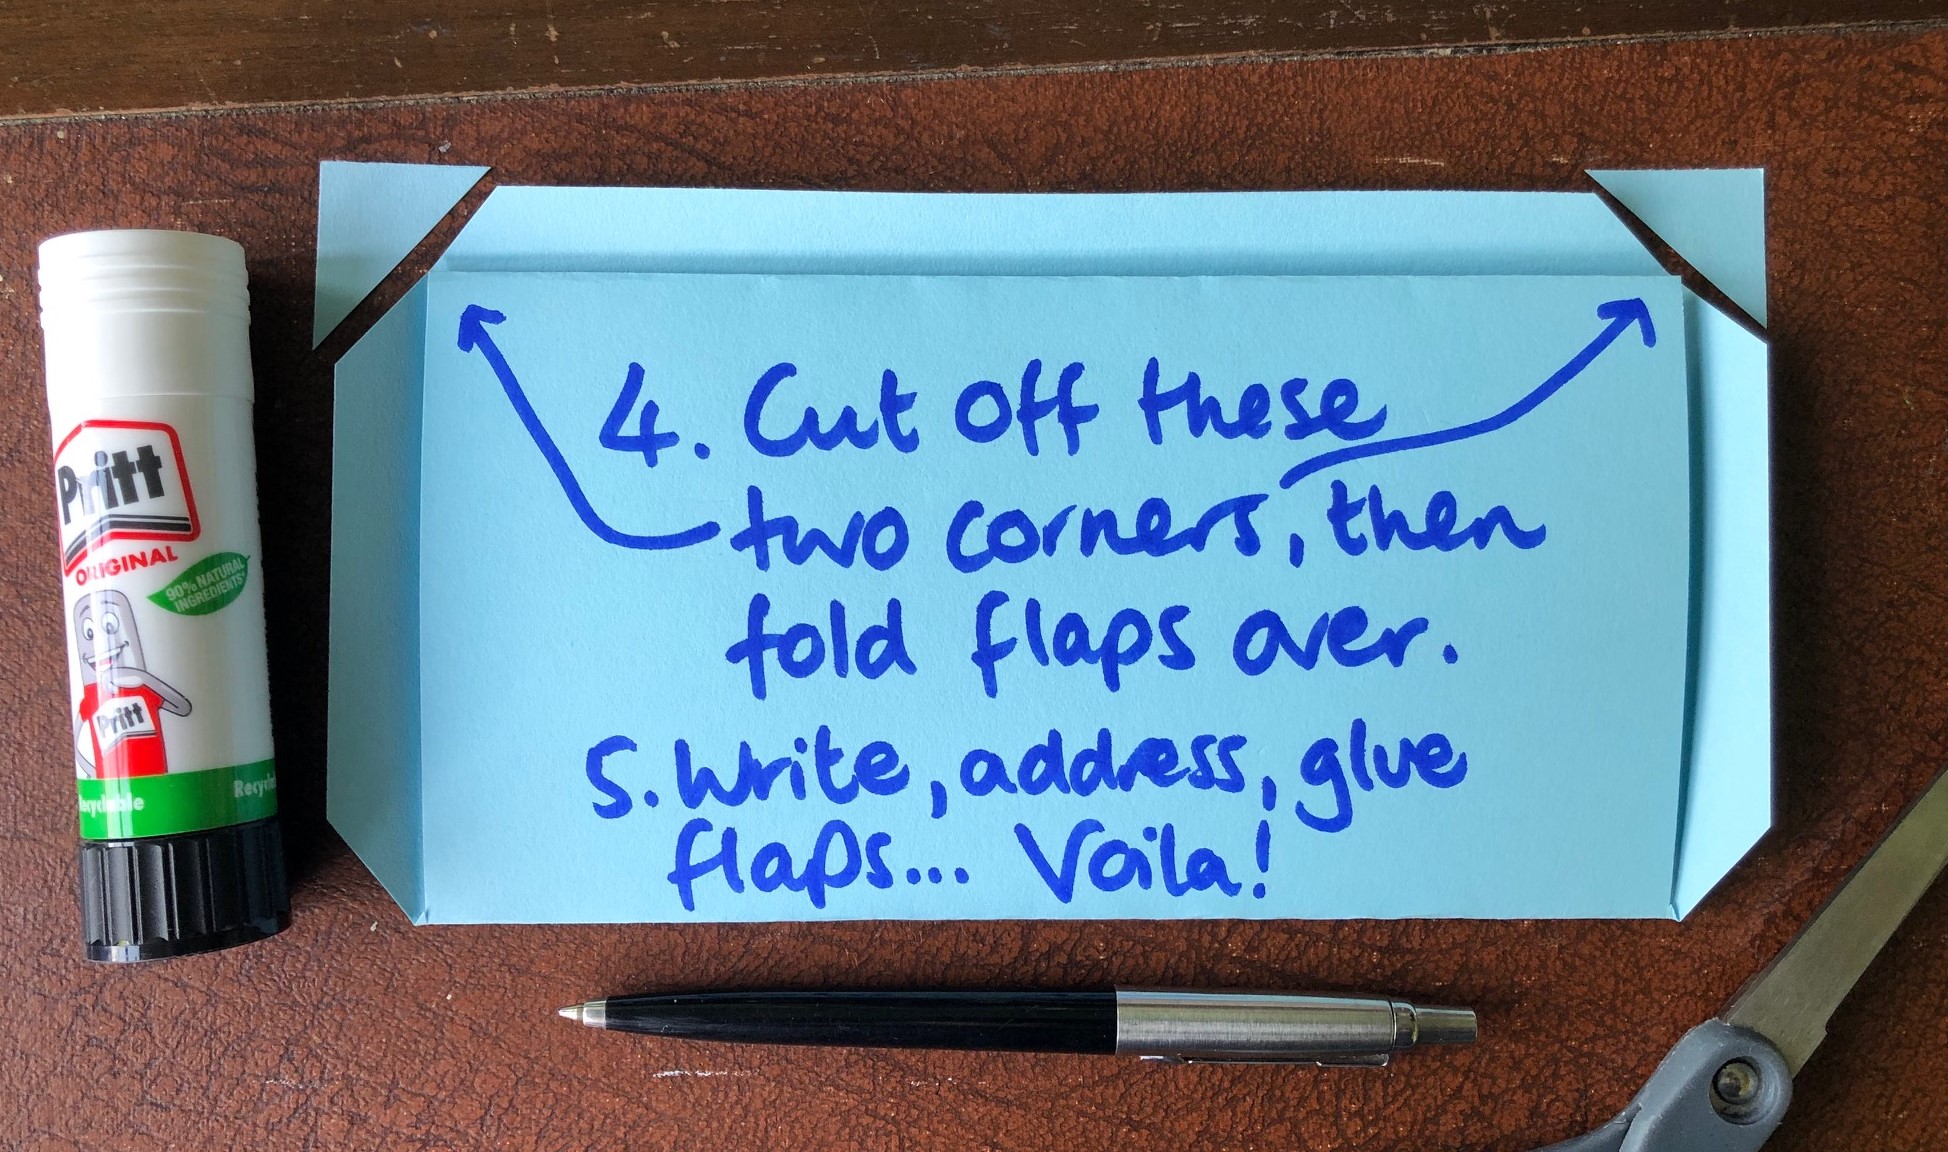 4. Cut off these
two corners, then
fold flaps over.
5. Write, address, glue
flaps... Voila!
Pritt
ORIGINAL
90% NATURAL
INGREDIENTS*
Pritt
Recyclable